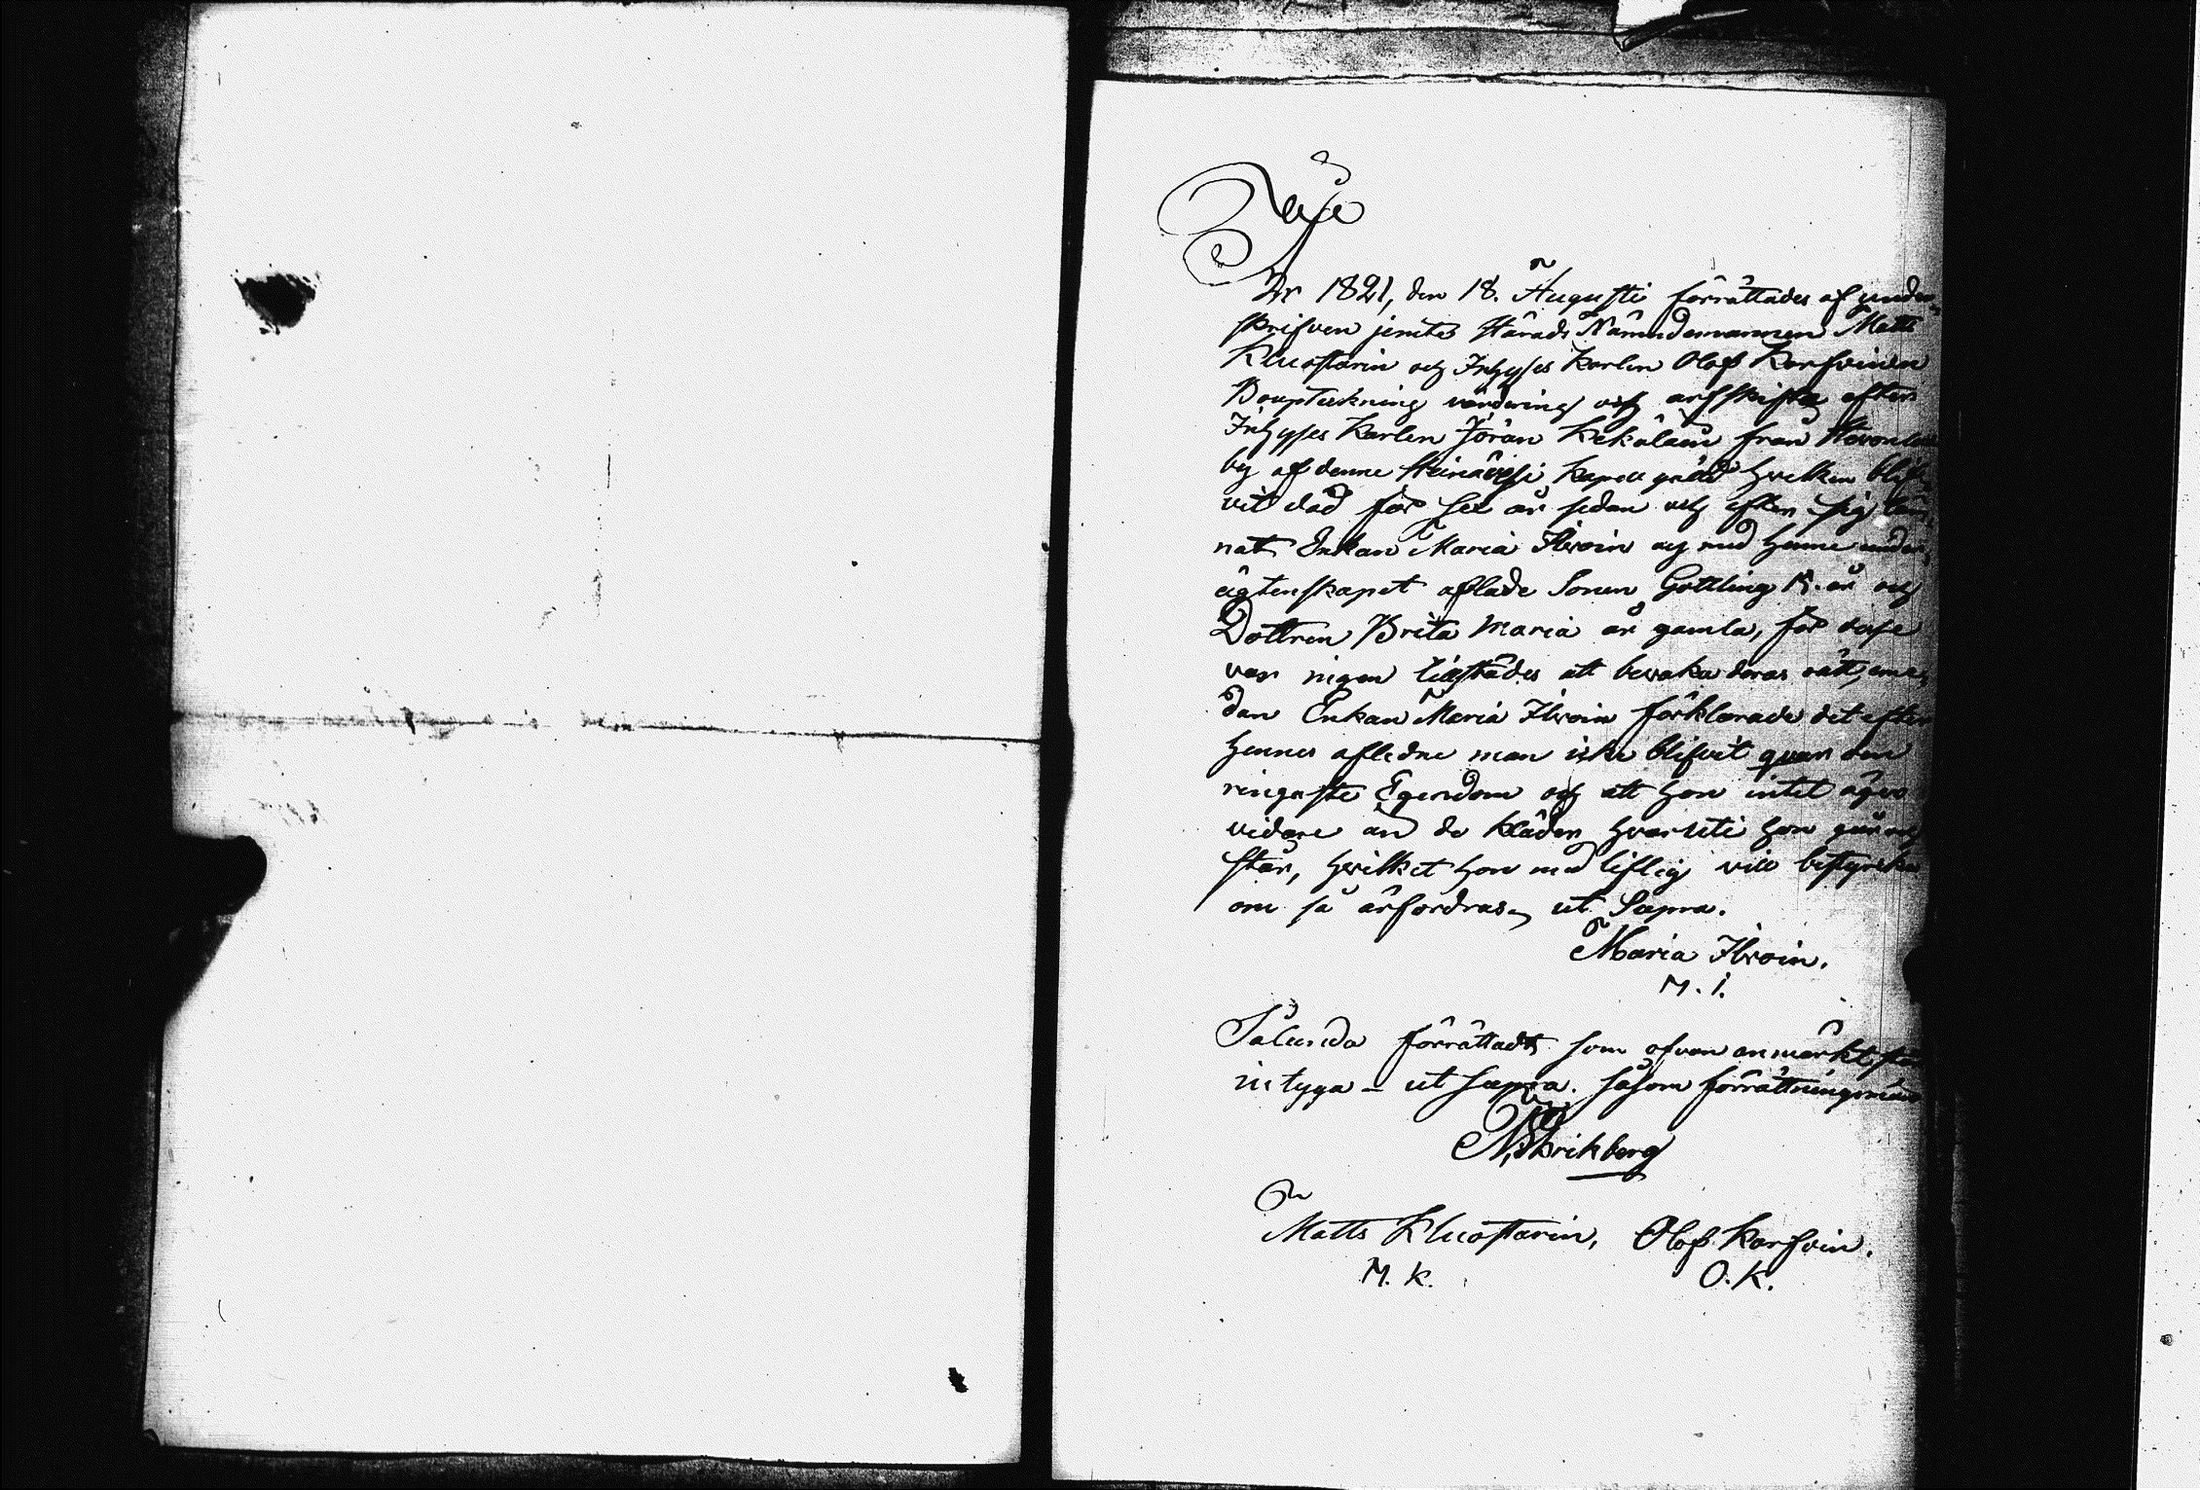 År 1821, den 18. Augusti förrättades af under-
skrifven jemte Härads Nämndemannen Matts
Kluostarin och Inhyses Karlen Olof Karfvinen
Bouptekning värdering och arfskifte efter
Inhyses Karlen Jöran Kekäläin från
by af denne Heinävesi Kapell gäld hvilken blif-
vit död för sex år sedan och efter sig läm-
nat Enkan Maria Ilvoin och med henne under
ägtenskapet aflade Sonen Gottling år och
Dottren Brita Maria år gamla, för dessa
var ingen tillstädes att bevaka deras rätt, eme-
dan Enkan Maria Ilvoin förklarade det efter
hennes afledne man icke blifvit qvar den
ringaste Egendom och att hon intet äger
vidare än de kläder hvaruti hon går och
står, hvilket hon med liflig vill bestyrka
om så ärfordras, ut Supra.
Maria Ilvoin.
M. I.
Sålunda förrättadt som ofvan anmärkt
intyga - ut supra. såsom förrättningsmän
Matts Kluostarin, Olof Karfvin.
M. K. O. K.